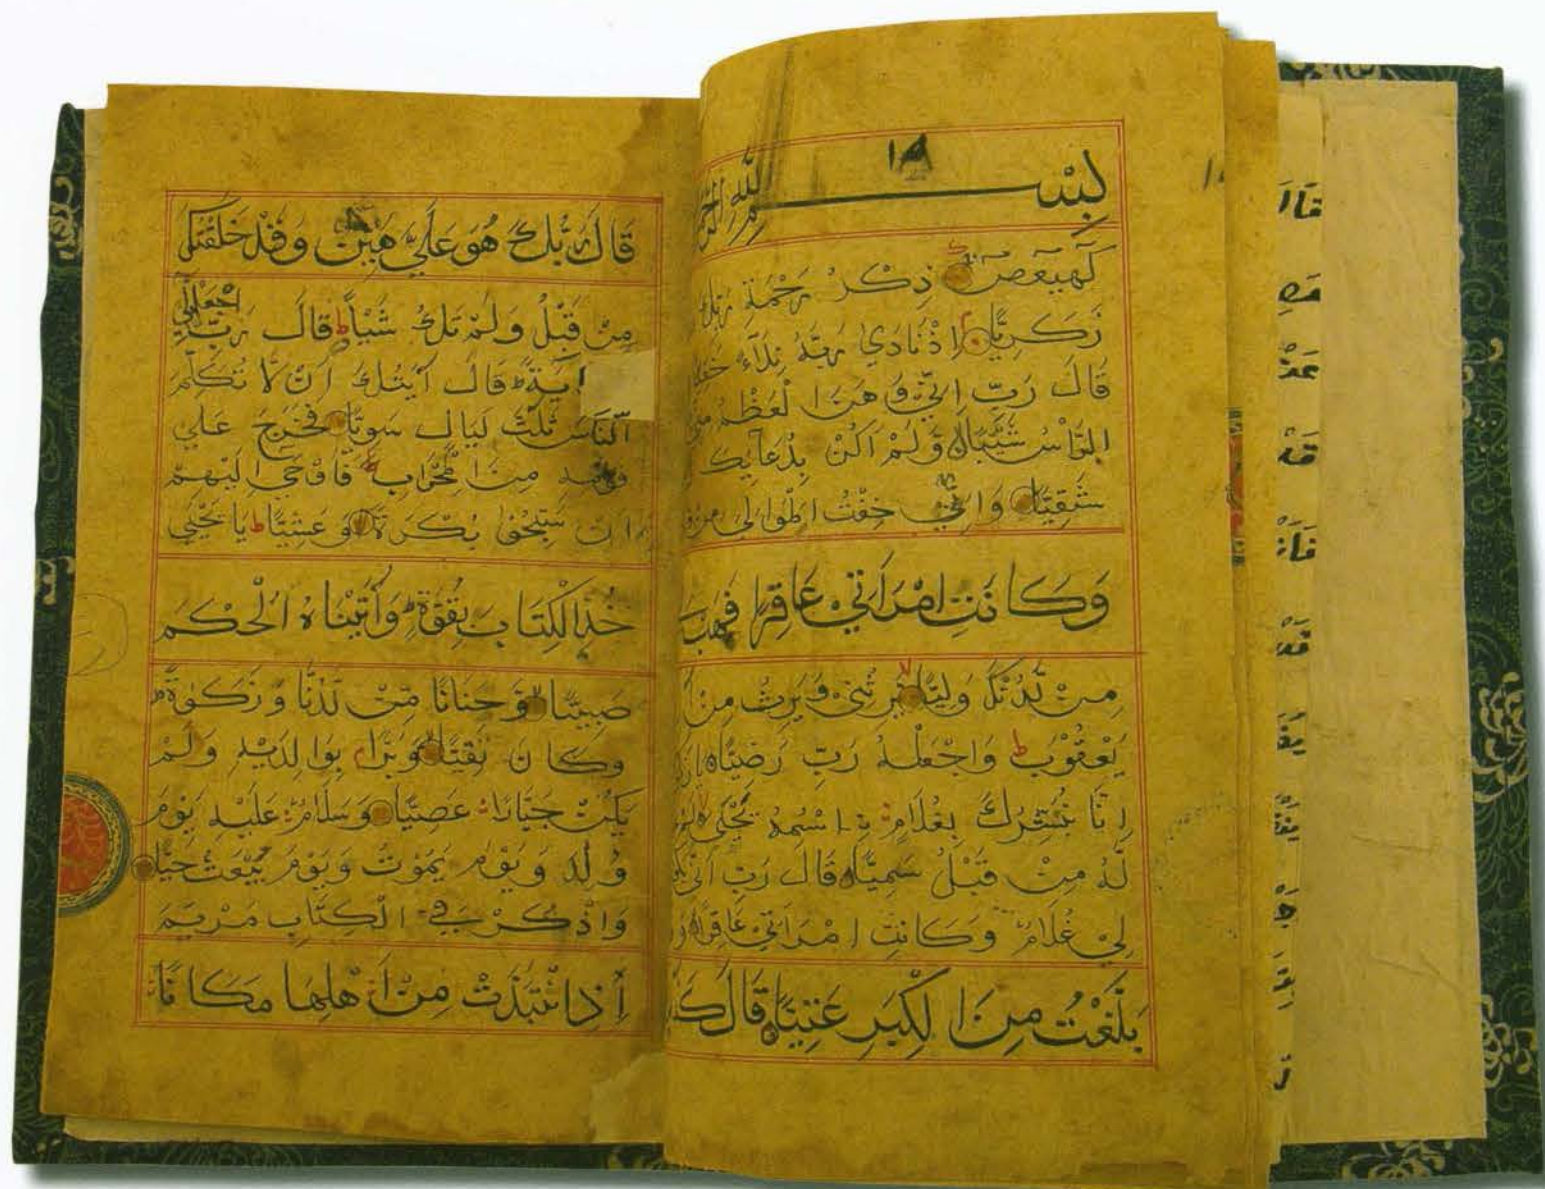 بِسْــــــمِ اللهِ الرَّحْمٰ
١٩
كۤهٰيٰعۤصۤ ذِكْرُ رَحْمَةِ رَبِّكَ
زَكَرِيَّا اِذْ نَادٰي رَبَّهُ نِدَآءً خَفِيًّا
قَالَ رَبِّ اِنِّيْ وَهَنَ الْعَظْمُ مِنِّي
الرَّاْسُ شَيْبًا وَلَمْ اَكُنْ بِدُعَآئِكَ
شَقِيًّا وَاِنِّيْ خِفْتُ الْمَوَالِيَ مِنْ وَ
وَكَانَتِ امْرَاَتِيْ عَاقِرًا فَهَبْ
مِنْ لَدُنْكَ وَلِيًّا يَرِثُنِيْ وَيَرِثُ مِنْ
يَعْقُوْبَ وَاجْعَلْهُ رَبِّ رَضِيًّا
اِنَّا نُبَشِّرُكَ بِغُلَامِ نِ اسْمُهُ يَحْيٰي
لَهُ مِنْ قَبْلُ سَمِيًّا قَالَ رَبِّ اَنّٰي
لِيْ غُلَامٌ وَكَانَتِ امْرَاَتِيْ عَاقِرًا
بَلَغْتُ مِنَ الْكِبَرِ عِتِيًّا قَالَ كَذ
قَالَ رَبُّكَ هُوَ عَلَيَّ هَيِّنٌ وَقَدْ خَلَقْتُكَ
مِنْ قَبْلُ وَلَمْ تَكُ شَيْئًا قَالَ رَبِّ اجْعَلْ لِيْ
اٰيَةً قَالَ اٰيَتُكَ اَنْ لَا تُكَلِّمَ
النَّاسَ ثَلٰثَ لَيَالٍ سَوِيًّا فَخَرَجَ عَلٰي
قَوْمِهِ مِنَ الْمِحْرَابِ فَاَوْحٰي اِلَيْهِمْ
اَنْ سَبِّحُوْا بُكْرَةً وَعَشِيًّا يَا يَحْيٰي
خُذِ الْكِتَابَ بِقُوَّةٍ وَاٰتَيْنَاهُ الْحُكْمَ
صَبِيًّا وَحَنَانًا مِنْ لَدُنَّا وَزَكٰوةً
وَكَانَ تَقِيًّا وَبَرًّا بِوَالِدَيْهِ وَلَمْ
يَكُنْ جَبَّارًا عَصِيًّا وَسَلَامٌ عَلَيْهِ يَوْمَ
وُلِدَ وَيَوْمَ يَمُوْتُ وَيَوْمَ يُبْعَثُ حَيًّا
وَاذْكُرْ فِي الْكِتَابِ مَرْيَمَ
اِذِ انْتَبَذَتْ مِنْ اَهْلِهَا مَكَانًا